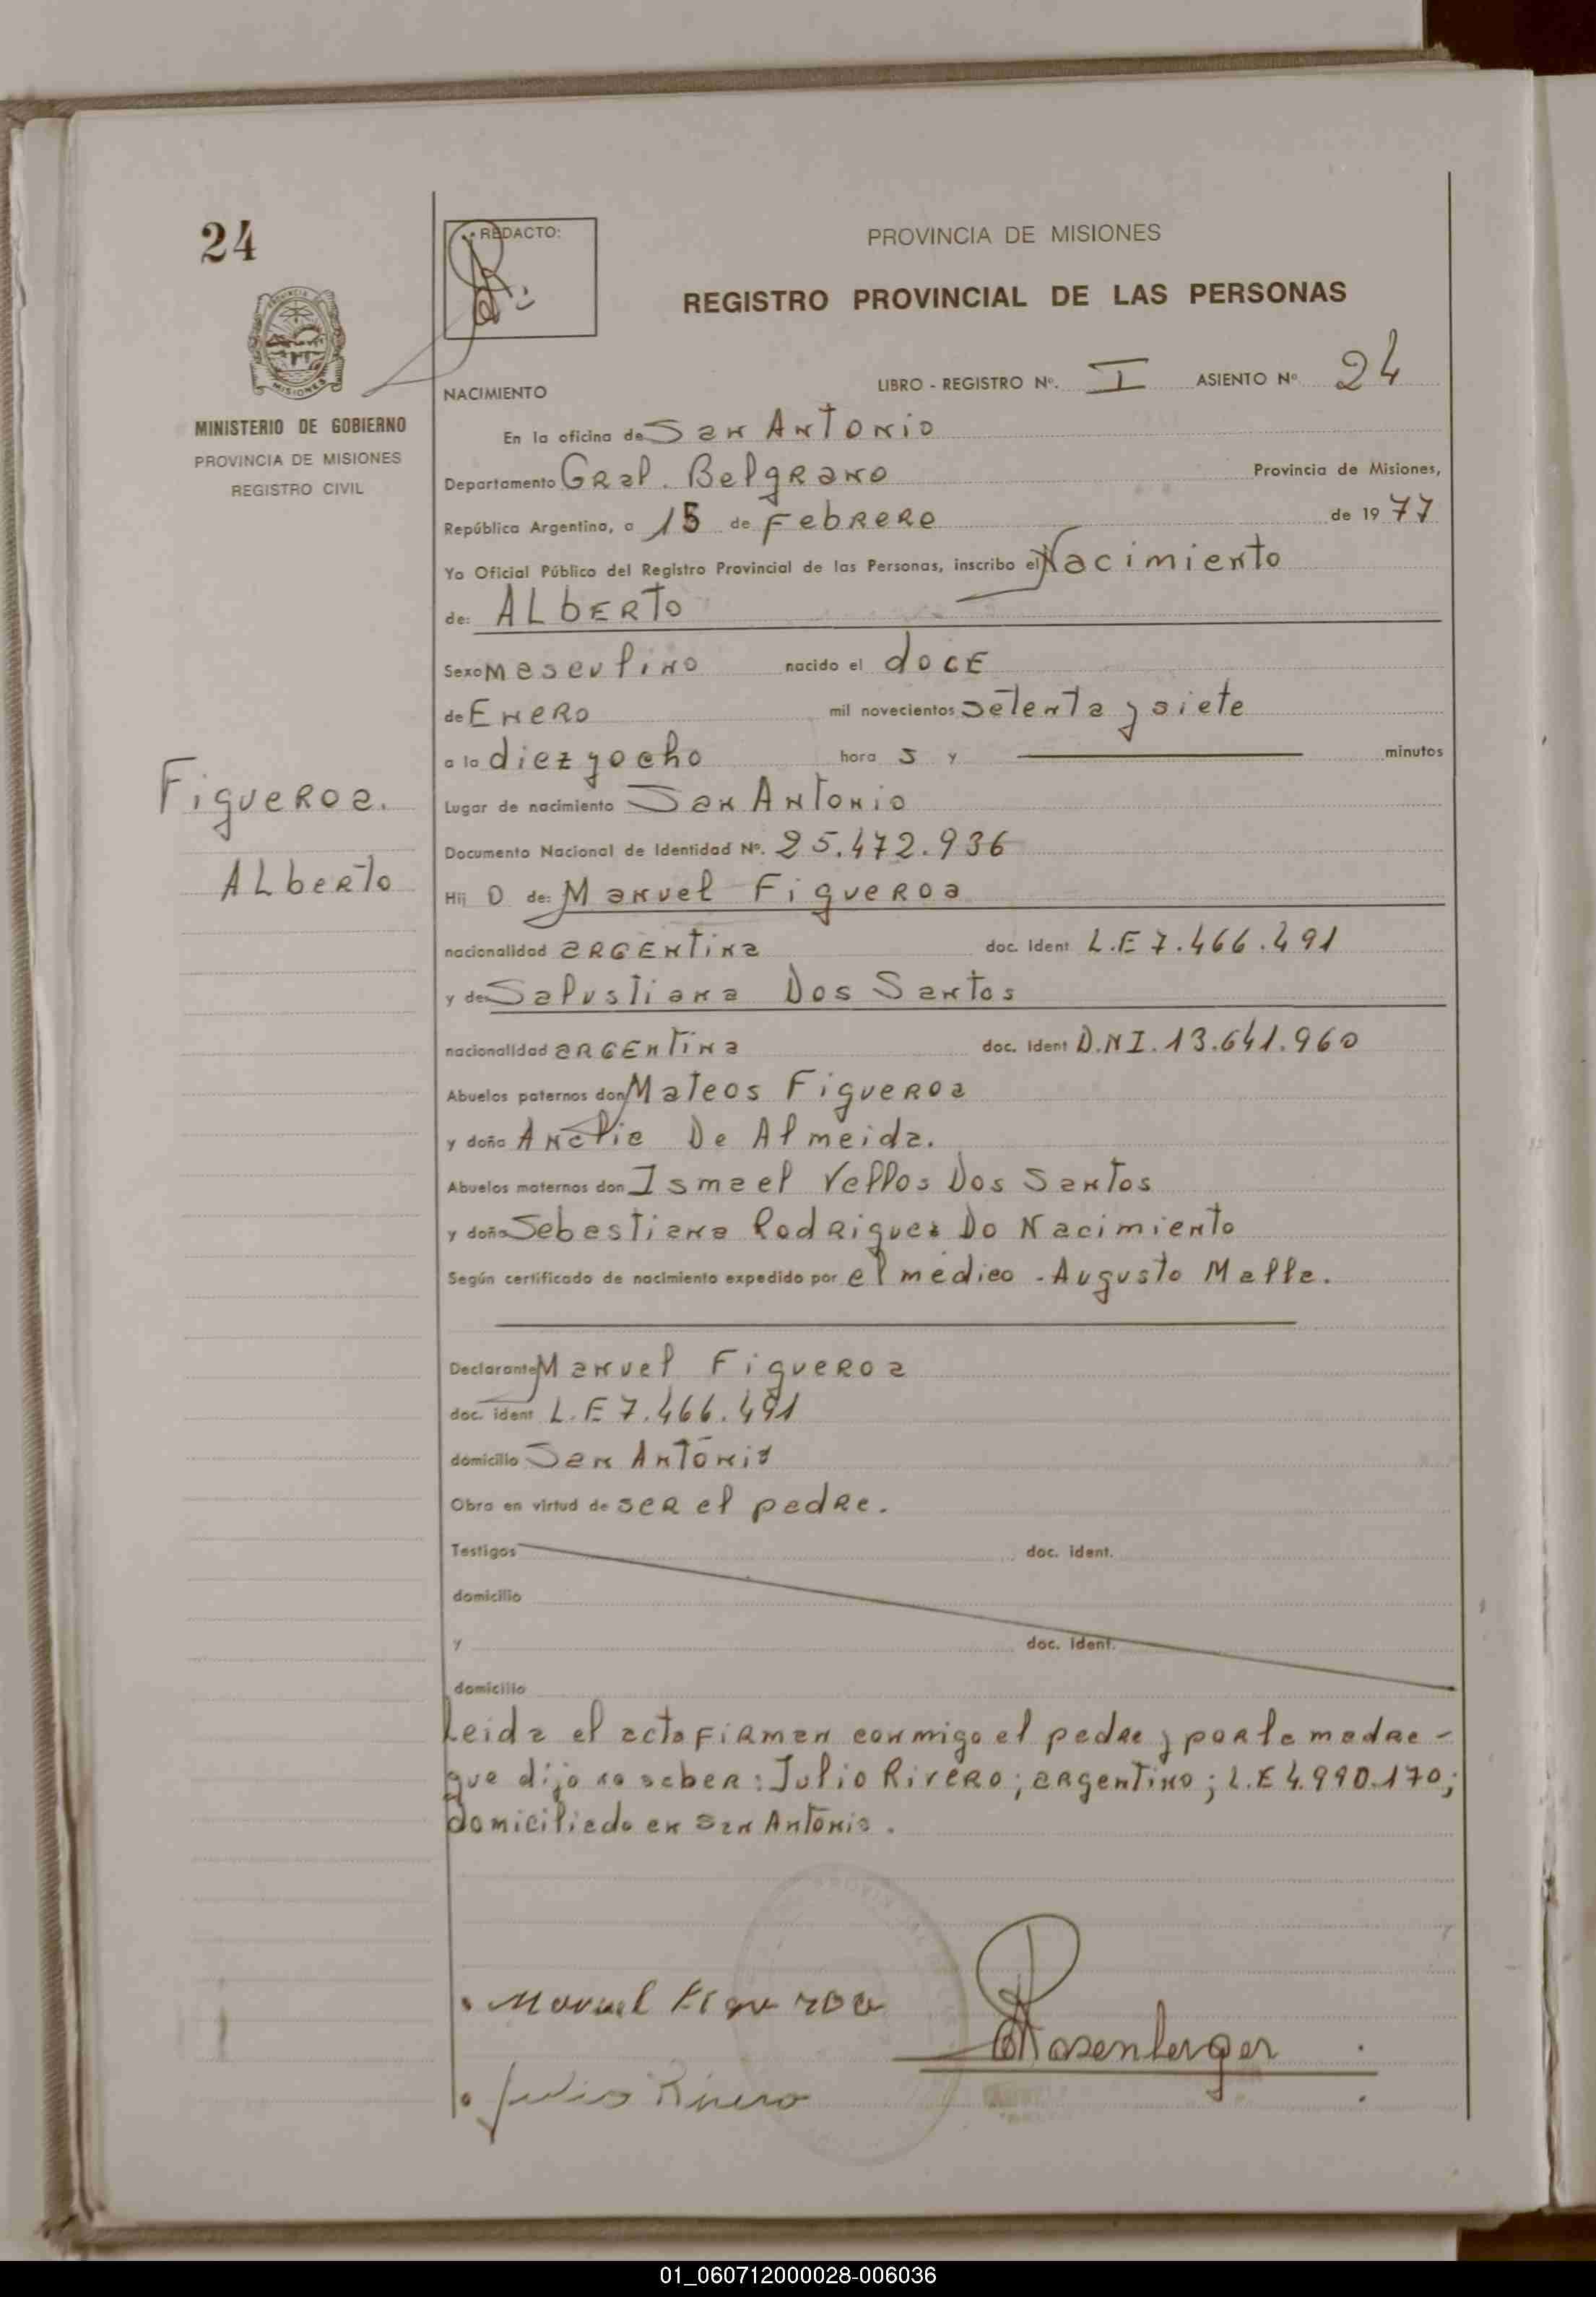 24
REDACTO:
PROVINCIA DE MISIONES
REGISTRO PROVINCIAL DE LAS PERSONAS
MISIONES
MINISTERIO DE GOBIERNO
PROVINCIA DE MISIONES
REGISTRO CIVIL
NACIMIENTO
LIBRO - REGISTRO Nº. I ASIENTO Nº 24
En la oficina de San Antonio
Departamento Gral. Belgrano Provincia de Misiones,
República Argentina, a 15 de Febrero de 19 77
Yo Oficial Público del Registro Provincial de las Personas, inscribo el Nacimiento
de: ALbERTO
Sexo masculino nacido el doce
de Enero mil novecientos setenta y siete
a la diez y ocho hora s y minutos
Figueroa.
Lugar de nacimiento San Antonio
Documento Nacional de Identidad Nº. 25.472.936
ALberto
Hij o de: Manuel Figueroa
nacionalidad argentina doc. Ident L.E 7.466.491
y de Salustiana Dos Santos
nacionalidad argentina doc. Ident D.N I. 13.641.960
Abuelos paternos don Mateos Figueroa
y doña Anelia De Almeida.
Abuelos maternos don Ismael Vellos Dos Santos
y doña Sebastiana Rodrigues Do Nacimiento
Según certificado de nacimiento expedido por el médico - Augusto Malla.
Declarante Manuel Figueroa
doc. ident L.E 7.466.491
domicilio San Antonio
Obra en virtud de ser el padre.
Testigos doc. ident.
domicilio
y doc. ident.
domicilio
Leida el acta firman conmigo el padre y por la madre -
que dijo no saber: Julio Rivero; argentino; L.E 4.990.170;
domiciliado en San Antonio.
Manuel Figueroa
Rosenberger
Julio Rivero
01_060712000028-006036